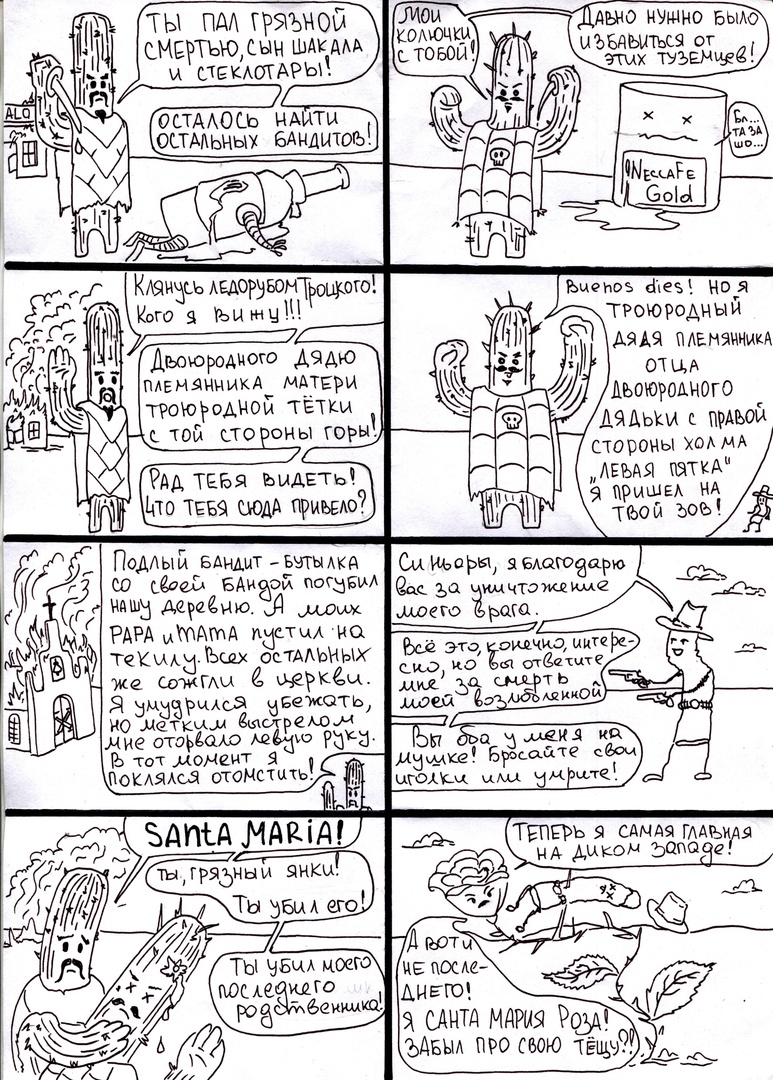 ТЫ ПАЛ ГРЯЗНОЙ
СМЕРТЬЮ, СЫН ШАКАЛА
И СТЕКЛОТАРЫ!
ОСТАЛОСЬ НАЙТИ
ОСТАЛЬНЫХ БАНДИТОВ!
ALO
МОИ
КОЛЮЧКИ
С ТОБОЙ!
ДАВНО НУЖНО БЫЛО
ИЗБАВИТЬСЯ ОТ
ЭТИХ ТУЗЕМЦЕВ!
БЛ...
ТА ЗА
ШО...
NECCAFE
Gold
КЛЯНУСЬ ЛЕДОРУБОМ ТРОЦКОГО!
КОГО Я ВИЖУ!!!
ДВОЮРОДНОГО ДЯДЮ
ПЛЕМЯННИКА МАТЕРИ
ТРОЮРОДНОЙ ТЁТКИ
С ТОЙ СТОРОНЫ ГОРЫ!
РАД ТЕБЯ ВИДЕТЬ!
ЧТО ТЕБЯ СЮДА ПРИВЕЛО?
Buenos dies! НО Я
ТРОЮРОДНЫЙ
ДЯДЯ ПЛЕМЯННИКА
ОТЦА
ДВОЮРОДНОГО
ДЯДЬКИ С ПРАВОЙ
СТОРОНЫ ХОЛМА
„ЛЕВАЯ ПЯТКА"
Я ПРИШЕЛ НА
ТВОЙ ЗОВ!
Подлый бандит - бутылка
со своей бандой погубил
нашу деревню. А моих
PAPA и MAMA пустил на
текилу. Всех остальных
же сожгли в церкви.
Я умудрился убежать,
но метким выстрелом
мне оторвало левую руку.
В тот момент я
поклялся отомстить!
Синьоры, я благодарю
вас за уничтожение
моего врага.
Всё это, конечно, интере-
сно, но вы ответите
мне за смерть
моей возлюбленной
Вы оба у меня на
мушке! Бросайте свои
иголки или умрите!
SANtA MARiA!
ТЫ, ГРЯЗНЫЙ ЯНКИ!
ТЫ УБИЛ ЕГО!
ТЫ УБИЛ МОЕГО
ПОСЛЕДНЕГО
РОДСТВЕННИКА!
ТЕПЕРЬ Я САМАЯ ГЛАВНАЯ
НА ДИКОМ ЗАПАДЕ!
А ВОТ И
НЕ ПОСЛЕ-
ДНЕГО!
Я САНТА МАРИЯ РОЗА!
ЗАБЫЛ ПРО СВОЮ ТЁЩУ?!